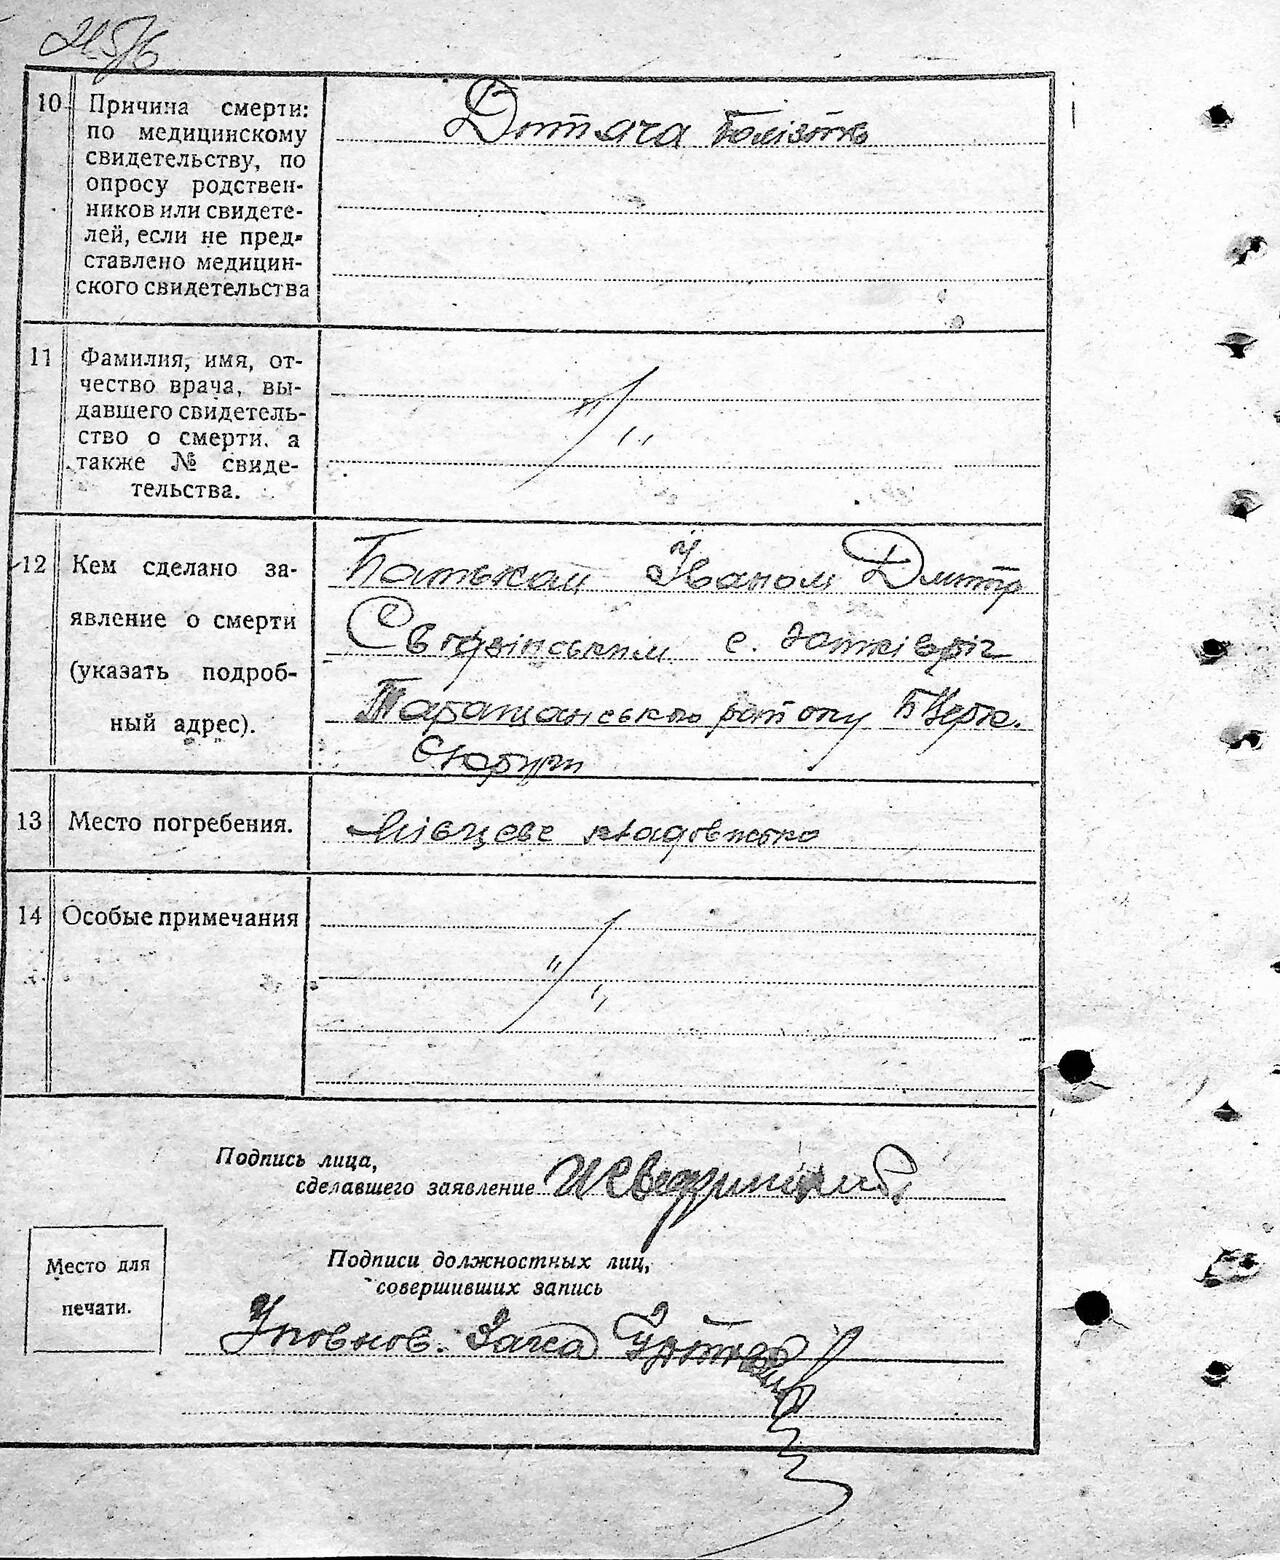 10 Причина смерти:
по медицинскому
свидетельству, по
опросу родствен-
ников или свидете-
лей, если не пред-
ставлено медицин-
ского свидетельства
Дитяча
11 Фамилия, имя, от-
чество врача, вы-
давшего свидетель-
ство о смерти, а
также № свиде-
тельства.
12 Кем сделано за-
явление о смерти
(указать подроб-
ный адрес).
Батьком Іваном Дмитр
с.
Таращанського району Б Церк.
13 Место погребения.
кладовисько
14 Особые примечания
Подпись лица,
сделавшего заявление
Место для
печати.
Подписи должностных лиц,
совершивших запись
Уповнов. Загса